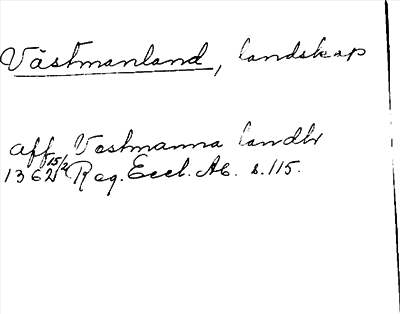 Västmanland, landskap
aff Vastmanna landh
1362 15/2 Reg. Eccl. Ab. s. 115.